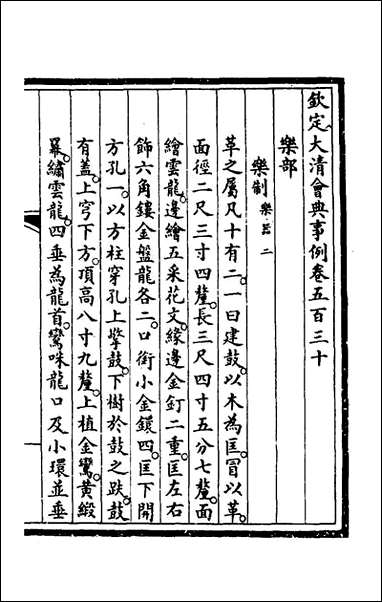 欽定大清會典事例卷五百三十
樂部
樂制 樂器二
革之屬凡十有二。一曰建鼓。以木為匡。冒以革。
面徑二尺三寸四釐。長三尺四寸五分七釐。面
繪雲龍。邊繪五采花文。緣邊金釘二重。匡左右
飾六角鏤金盤龍各二。口銜小金鐶四。匡下開
方孔一。以方柱穿孔上擎鼓。下樹於鼓之趺。鼓
有蓋。上穹下方。頂高八寸九釐。上植金鸞。黃緞
羃。繡雲龍。四垂為龍首。鸞咮龍口及小環並垂